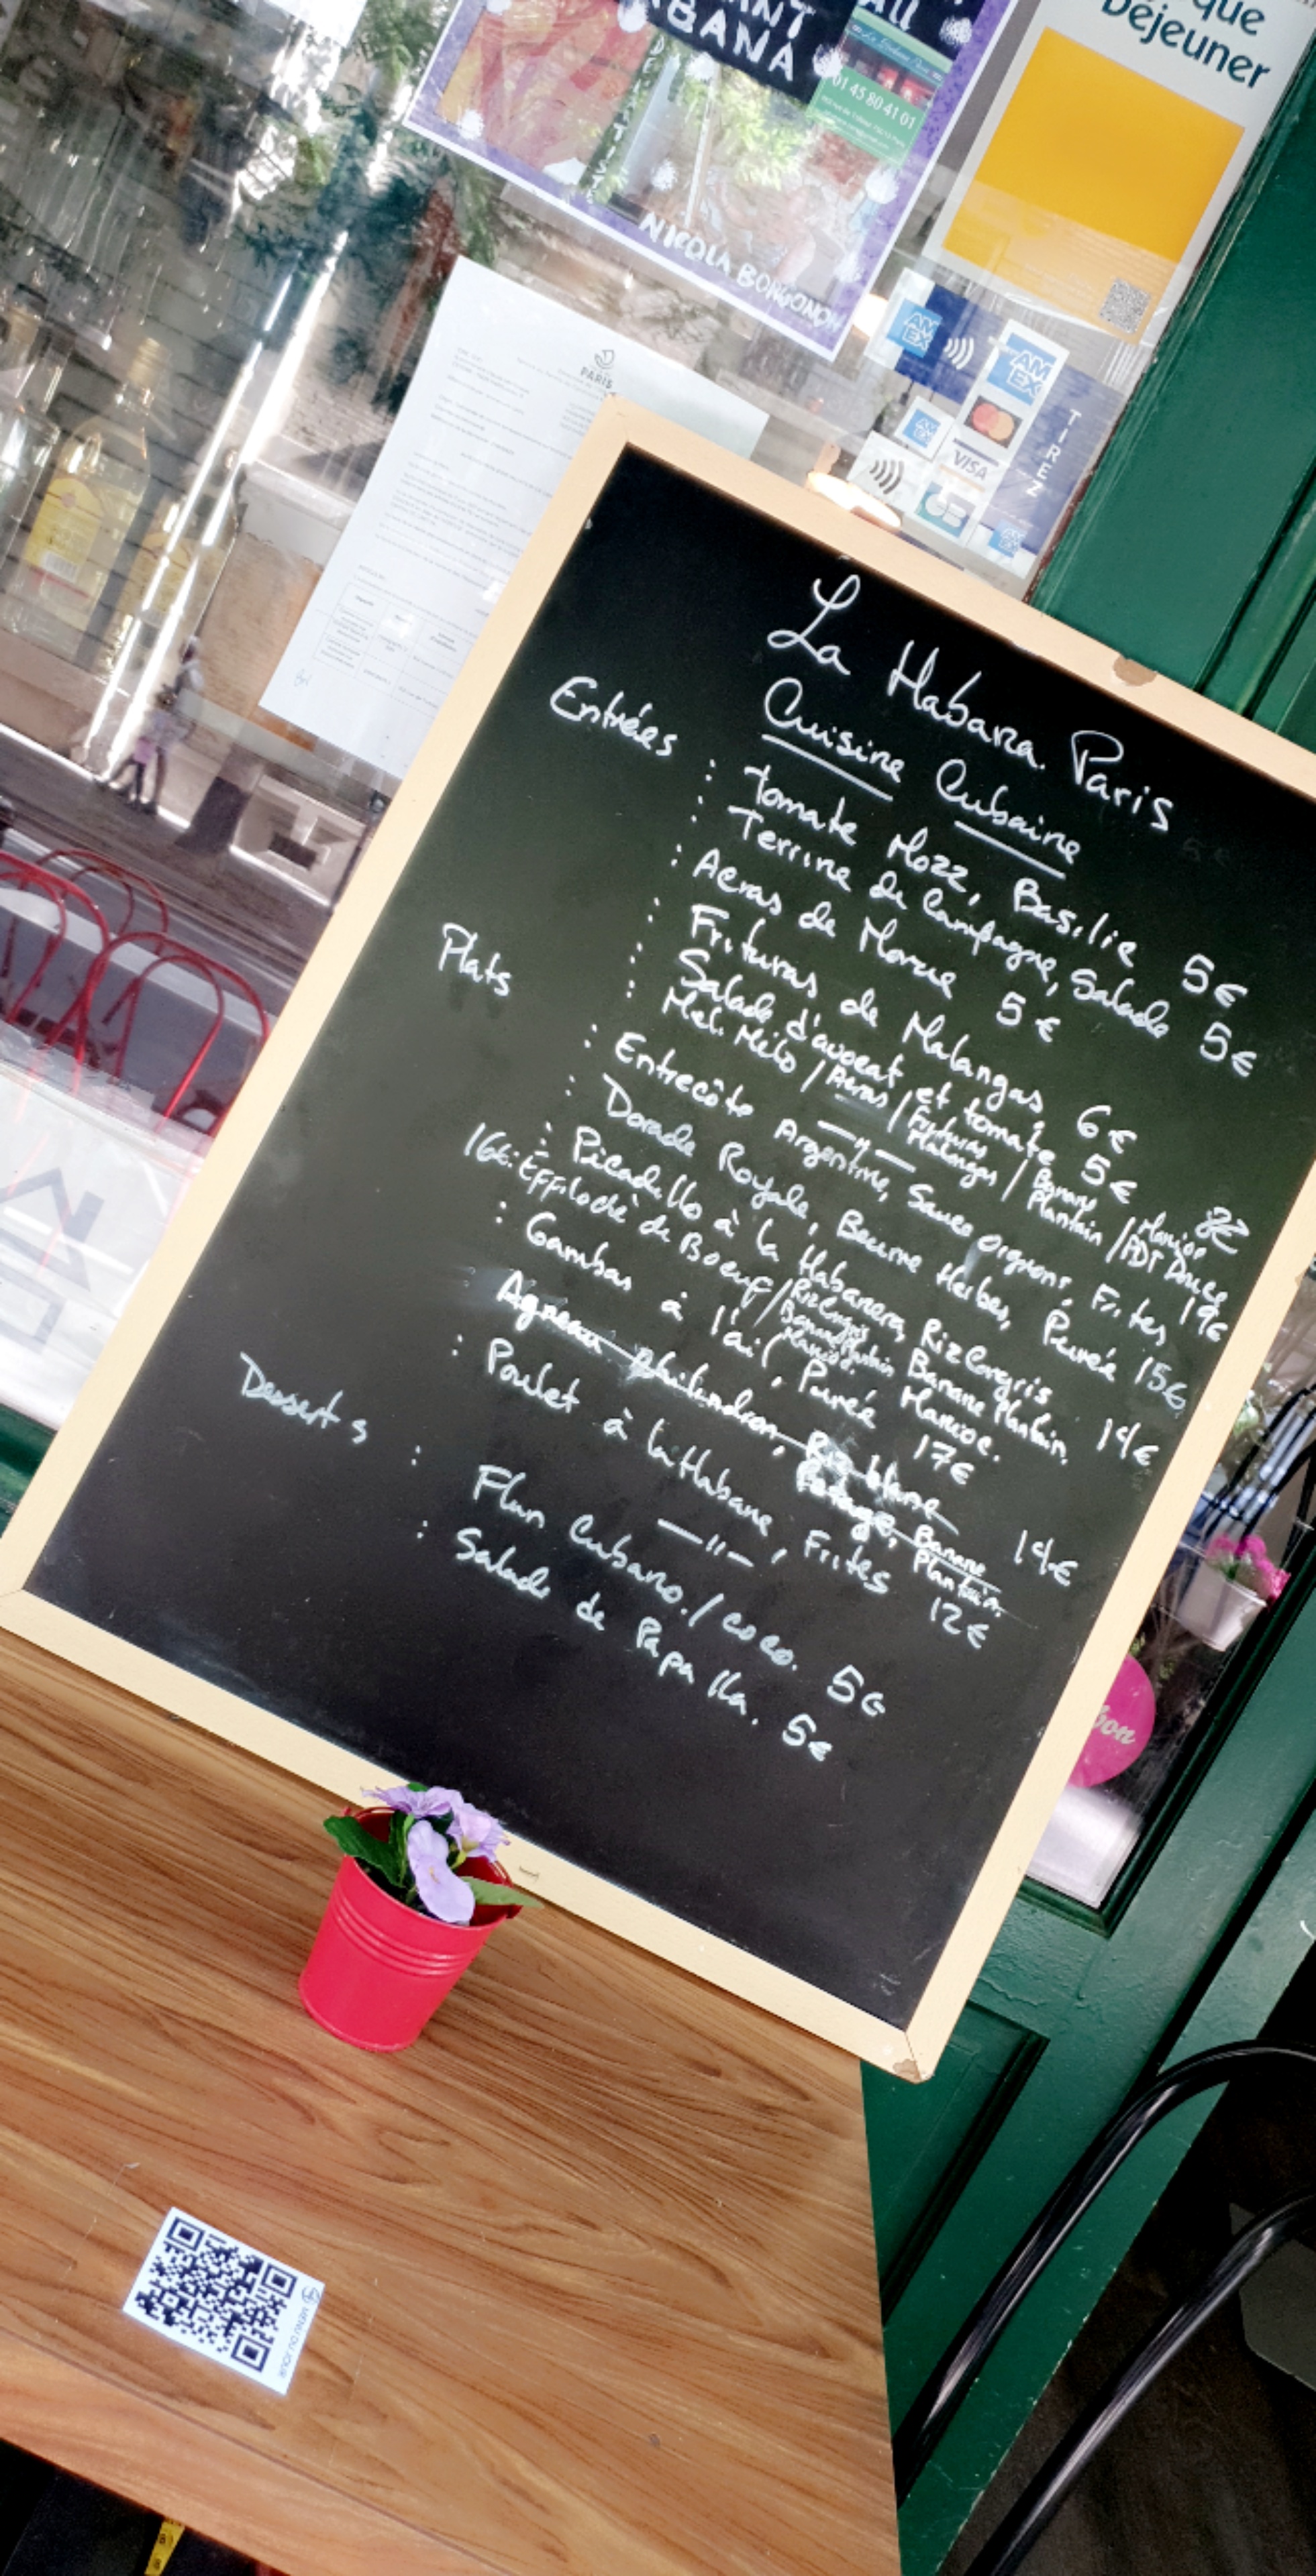 ANT
ABANA
all
01 45 80 41 01
NICOLA BONGONOH
que
Déjeuner
PARIS
AM
EX
AM
EX
AM
EX
VISA
TIREZ
La Habana. Paris
Cuisine Cubaine
Entrées : Tomate Mozz, Basilic 5€
: Terrine de Campagne, Salade 5€
: Acras de Morue 5€
: Frituras de Malangas 6€
: Salade d'avocat et tomate 5€
: Mel. Milo / Acras / Frituras Malangas / Banane Plantain / Manioc / PDT Douce
Plats : Entrecôte Argentine, Sauce oignons, Frites 19€
: Dorade Royale, Beurre Herbes, Purée 15€
: Picadillo à la Habanera, Riz Congris Banane Plantain. 14€
16€: Effiloché de Boeuf / Riz Congris Banane Plantain Manioc
: Gambas à l'ail, Purée Manioc. 17€
Agneau philindron, Riz blanc Potage, Banane Plantain. 14€
: Poulet à la Habane, Frites 12€
Desserts : Flan Cubano. / coco. 5€
: Salade de Papa lla. 5€
bon
MENU DU JOUR